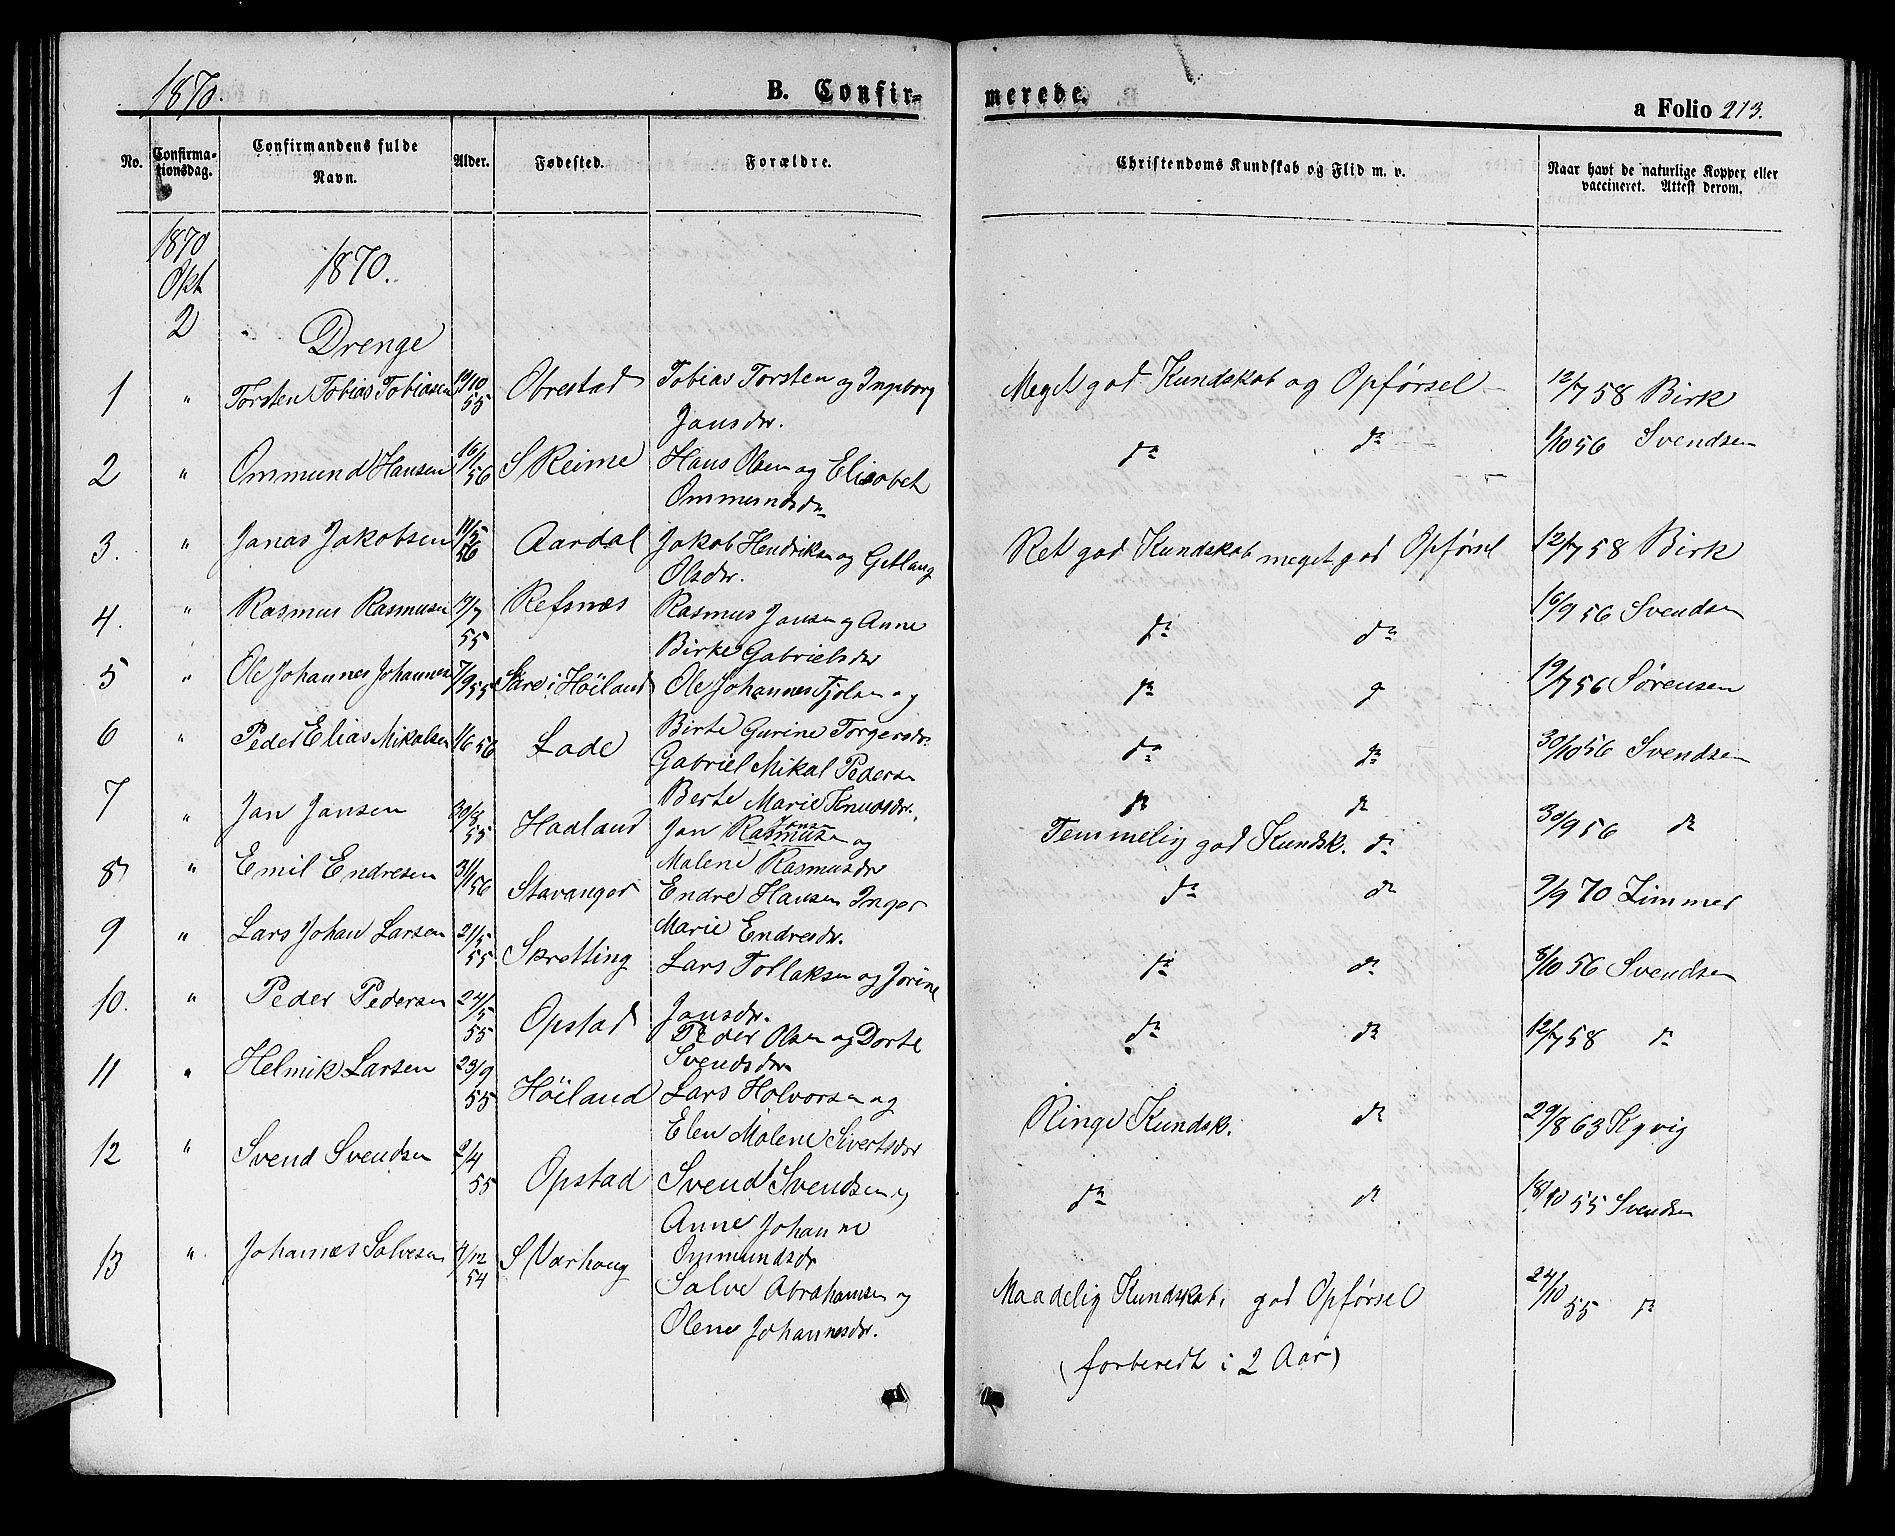 1870.
B. Confir-
merede.
a Folio 213.
No.
Confirma-
tionsdag.
Confirmandens fulde
Navn.
Alder.
Fødested.
Forældre.
Christendoms Kundskab og Flid m. v.
Naar havt de naturlige Kopper eller
vaccineret. Attest derom.
1870
Okt
2
1870.
Drenge
1 " Torsten Tobias Tobiasen 19/10 55 Obrestad Tobias Torsten og Ingeborg
Jansdr.
Meget god Kundskab og Opførsel 12/7 58 Birk
2 " Ommund Hansen 16/1 56 S Reime Hans Olsen og Elisabet
Ommundsdr
do do 1/10 56 Svendsen
3. " Janas Jakobsen 11/5 56 Aardal Jakob Henriksen og Getlaug
Olsdr.
Ret god Kundskab meget god Opførsel 12/7 58 Birk
4. " Rasmus Rasmusen 19/7 55 Refsnæs Rasmus Jansen og Anne
Birke Gabrielsdr
do do 16/9 56 Svendsen
5 " Ole Johannes Johannesen 7/9 55 i Höiland Ole Johannes Tjolsen og
Birte Gurine Torgersdr.
do 19/7 56 Sørensen
6 " Peder Elias Mikalsen 1/6 56 Lode Gabriel Mikal Pedersen
Berte Marie Knudsdr.
do do 30/10 56 Svendsen
7 " Jan Jansen 30/8 55 Hadland Jan Rasmusen og
Jansen
Malene Rasmusdr
do do
Temmelig god Kundsk. do 30/9 56 do
8 " Emil Endresen 31/1 56 Stavanger Endre Hansen Inger
Marie Endresdr.
do do 9/9 70 Zimmer
9 " Lars Johan Larsen 21/5 55 Skretting Lars Tollaksen og Jorine
Jansdr.
do do 8/10 56 Svendsen
10. " Peder Pedersen 24/5 55 Opstad Peder Olsen og Dorte
Svendsdr
do do 12/7 58 do
11 " Helmik Larsen 23/9 55 Höiland Lars Holvorsen og
Elen Malene Sivertsdr
Ringe Kundsk. do 29/8 63 Kyvig
12 " Svend Svendsen 2/4 55 Opstad Svend Svendsen og
Anne Johanne
Ommundsdr
do do 18/10 55 Svendsen
13 " Johannes Salvesen 4/12 54 S Varhaug Salve Abrahamsen og
Olene Johannesdr.
Maadelig Kundskab, god Opførsel 24/10 55 do
(forberedt i 2 Aar)